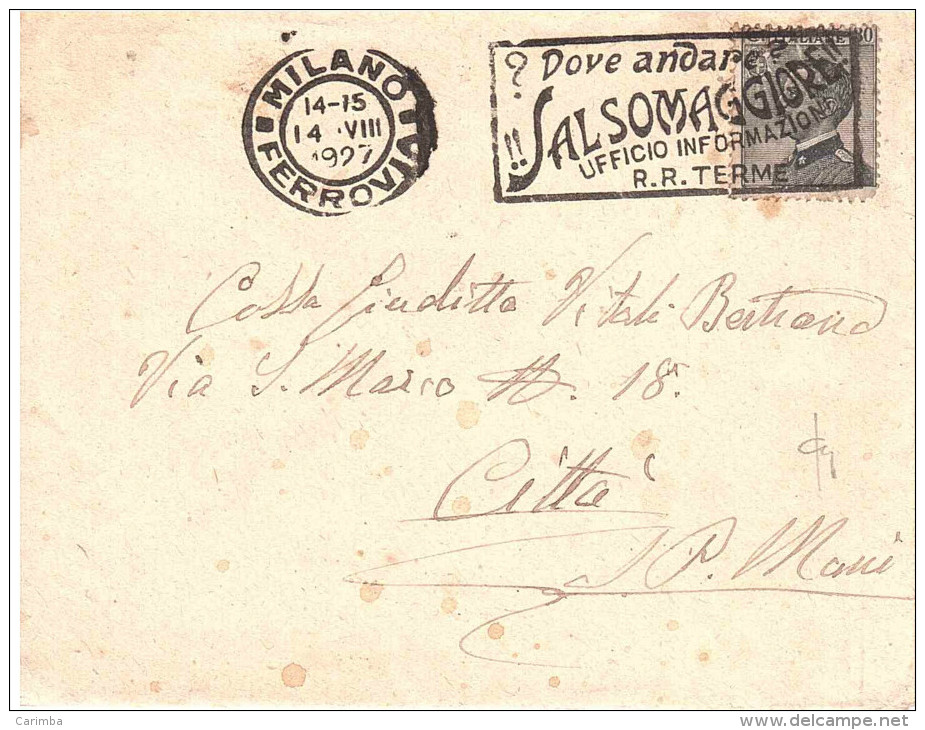 MILANO
14-15
14 VIII
1927
FERROVIA
? Dove andare ?
!! SALSOMAGGIORE!
UFFICIO INFORMAZIONI
R.R. TERME
Giuditta Vitali Bertrand
Via S. Marco N. 18.
Città
S P. Mani
Carimba
www.delcampe.net